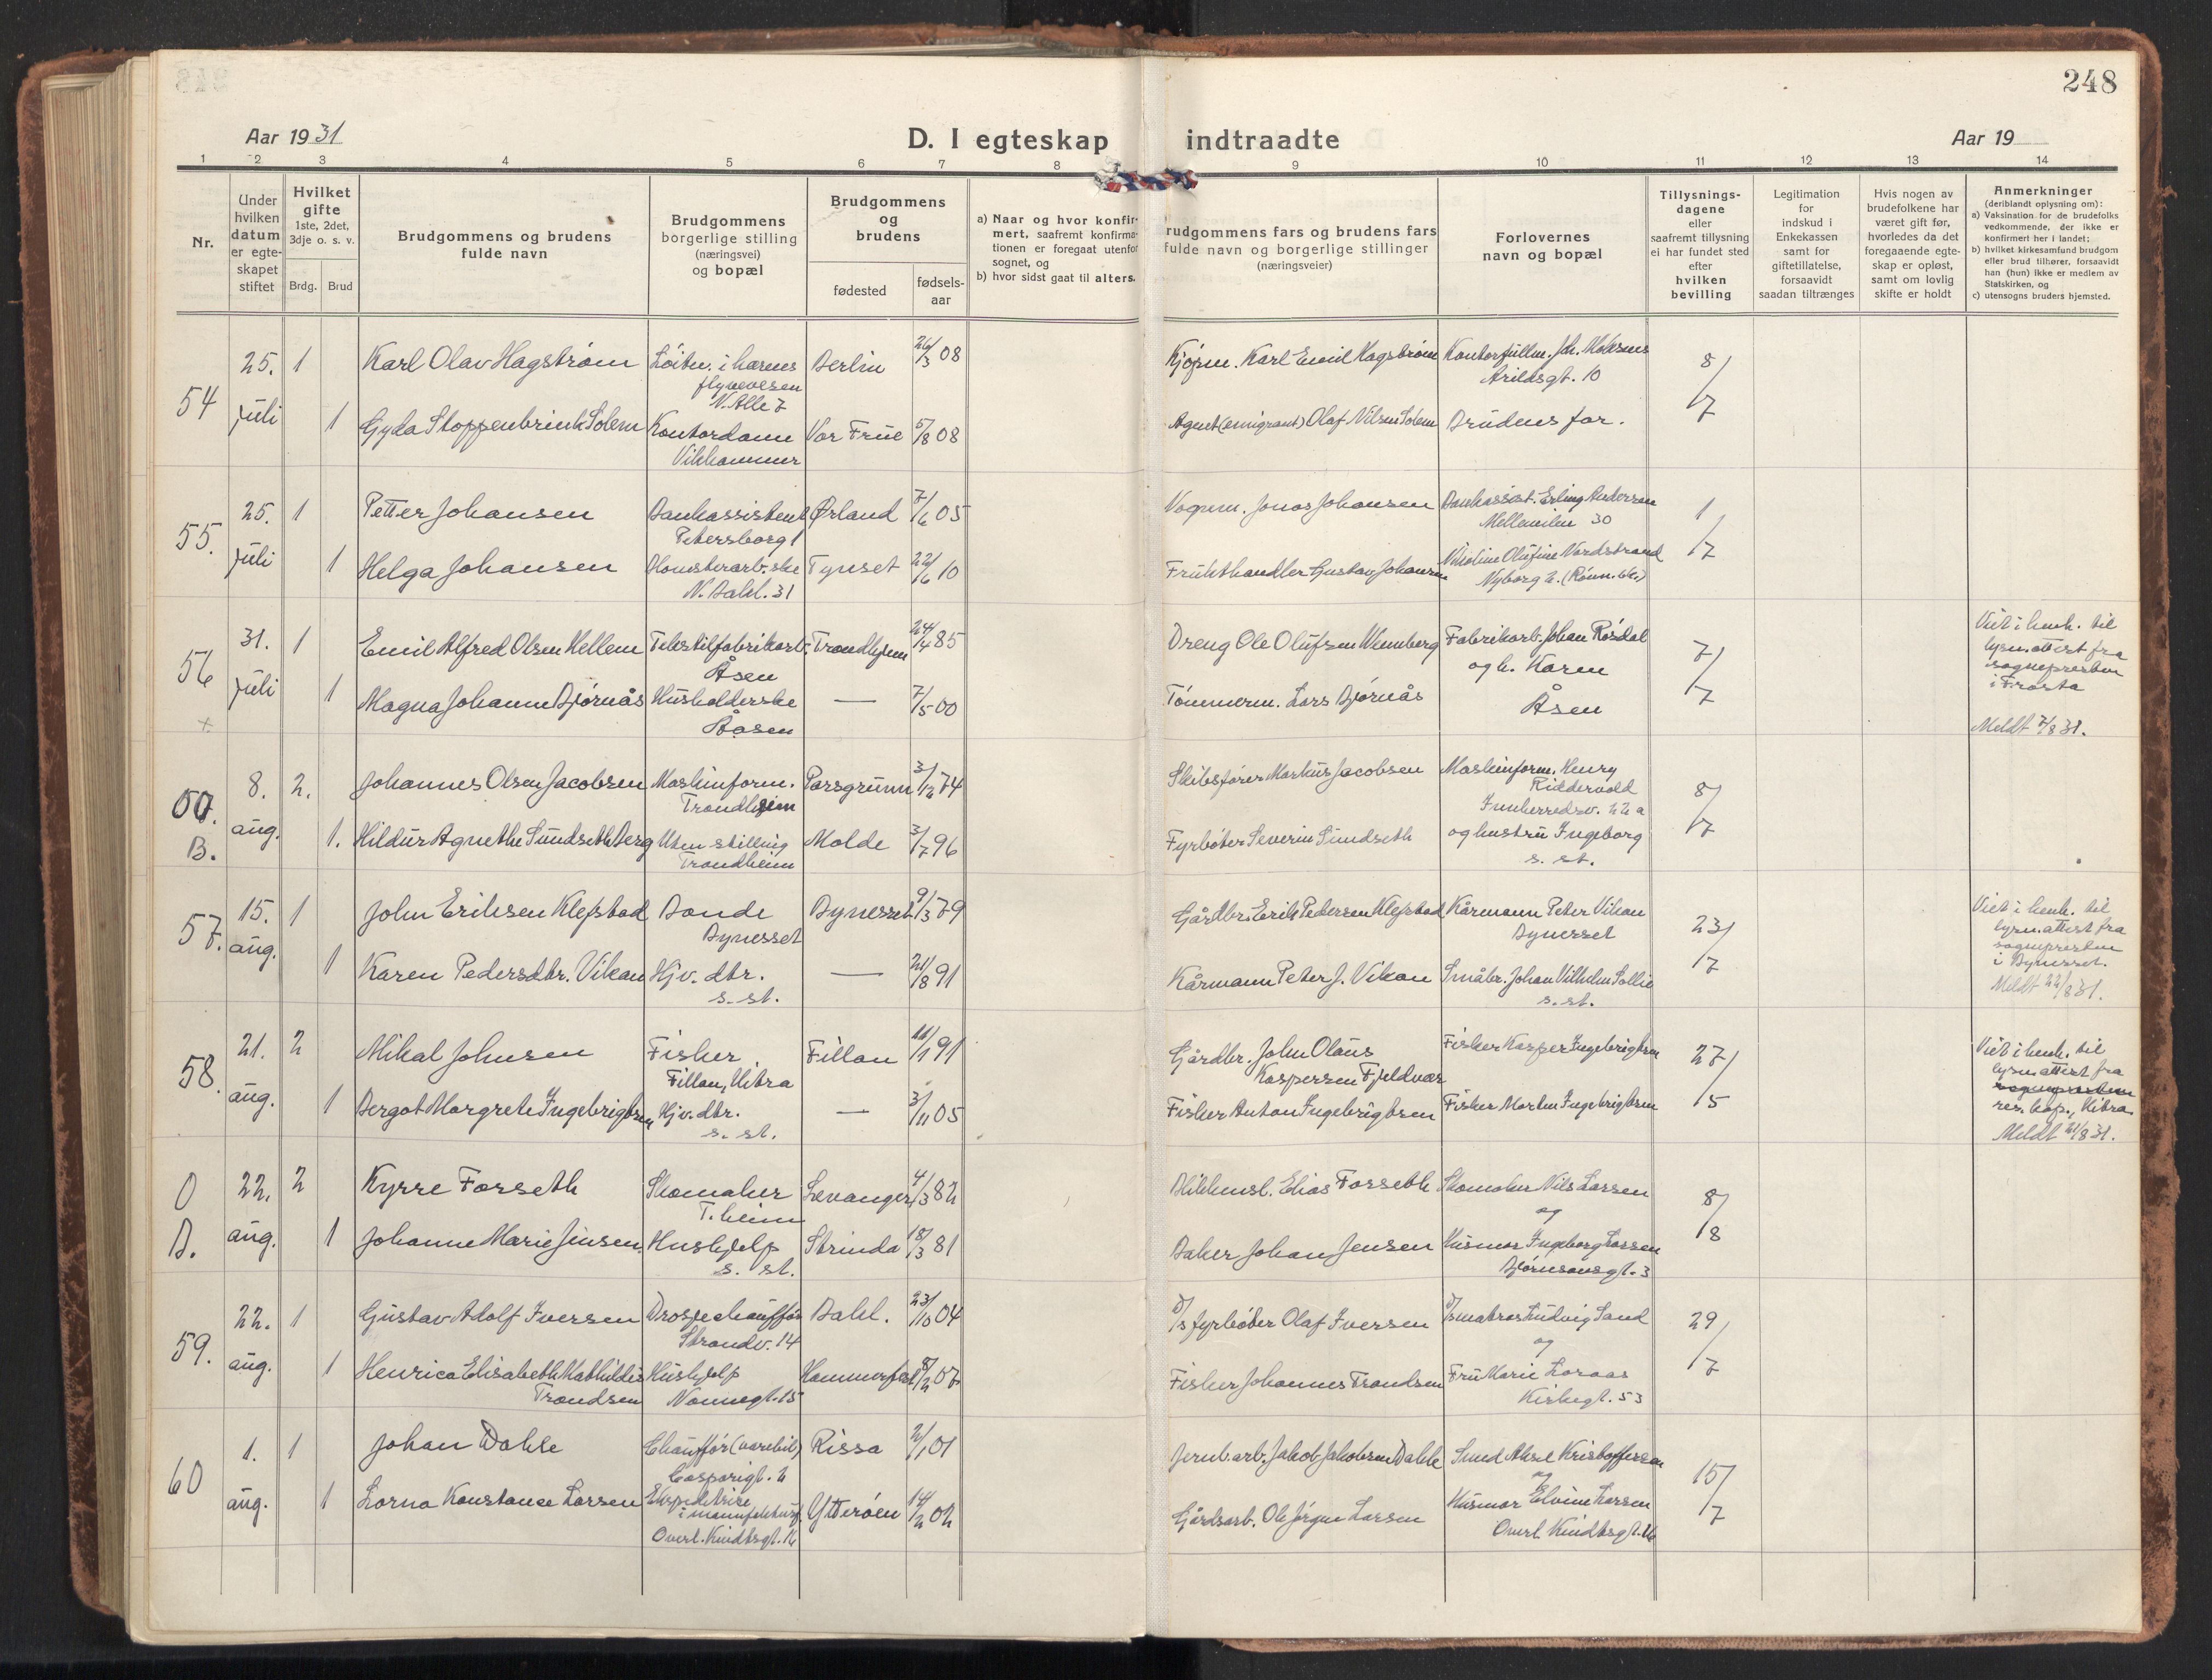 248
Aar 1931
D. I egteskap indtraadte
Aar 19
1 2 3 4 5 6 7 8 9 10 11 12 13 14
Nr.
Under
hvilken
datum
er egte-
skapet
stiftet
Hvilket
gifte
1ste, 2det,
3dje o. s. v.
Brdg. Brud
Brudgommens og brudens
fulde navn
Brudgommens
borgerlige stilling
(næringsvei)
og bopæl
Brudgommens
og
brudens
fødested
fødsels-
aar
a) Naar og hvor konfir-
mert, saafremt konfirma-
tionen er foregaat utenfor
sognet, og
b) hvor sidst gaat til alters.
rudgommens fars og brudens fars
fulde navn og borgerlige stillinger
(næringsveier)
Forlovernes
navn og bopæl
Tillysnings-
dagene
eller
saafremt tillysning
ei har fundet sted
efter
hvilken
bevilling
Legitimation
for
indskud i
Enkekassen
samt for
giftetillatelse,
forsaavidt
saadan tiltrænges
Hvis nogen av
brudefolkene har
været gift før,
hvorledes da det
foregaaende egte-
skap er opløst,
samt om lovlig
skifte er holdt
Anmerkninger
(deriblandt oplysning om):
a) Vaksination for de brudefolks
vedkommende, der ikke er
konfirmert her i landet;
b) hvilket kirkesamfund brudgom
eller brud tilhører, forsaavidt
han (hun) ikke er medlem av
Statskirken, og
c) utensogns bruders hjemsted.
54 25. juli 1 Karl Olav Hagstrøm Løitn. i hærens Berlin 26/3 08 Kjøpm. Karl Emil Hagstrøm Kontorfullm. Joh. 8/7
flyvevesen Arildsgt. 10
N. Alle 7
1 Gyda Stoppenbrink Solem Kontordame Vor Frue 5/8 08 Agent (emigrant) Olaf Nilsen Solem Brudens far.
Vikhammer
55. 25. juli 1 Petter Johansen Bankassistent Ørland 7/6 05 Vognm. Jonas Johansen Bankassist. Erling Andersen 1/7
Petersborg 1 Mellemilen 30
1 Helga Johansen Blomsterarb.ske Tynset 22/6 10 Frukthandler Gustav Johansen Olufine Nordstrand
N. Bakl. 31 Nyborg
56 31. juli 1 Emil Alfred Olsen Hellem Tekstilfabrikarb. Trondhjem 24/4 85 Dreng Ole Olufsen Wenneberg Fabrikarb. Johan Rosdal 7/7 Viet i henh. til
Åsen og h. Karen lysn.attest fra
sognepresten
i Frosta
1 Magna Johanne Bjørnås Husholderske — 7/5 00 Tømmerm. Lars Bjørnås Åsen
Åsen Meldt 7/8 31.
+
00. B. 8. aug. 2. Johannes Olsen Jacobsen Maskinform. Porsgrunn 3/12 74 Skibsfører Markus Jacobsen Maskinform. Henry 8/7
Trondhjeim Riddervold
Innherredsv. 22a
1. Hildur Agnethe Sundseth Berg Uten stilling Molde 3/7 96 Fyrbøter Severin Sundseth og hustru Ingeborg
Trondheim s. st.
57. 15. aug. 1 John Eriksen Klefstad Bonde Bynesset 9/3 79 Gårdbr. Erik Pedersen Klefstad Kårmann Peter Vikan 23/7 Viet i henh. til
Bynesset Bynesset lysn.attest fra
sognepresten
i Bynesset.
1 Karen Pedersdtr. Vikan Hjv. dtr. — 21/8 91 Kårmann Peter J. Vikan Småbr. Johan Vilhelm Sollie Meldt 22/8 31.
s. st. s. st.
58. 21. aug. 2 Mikal Johnsen Fisker Fillan 11/1 91 Gårdbr. John Olaus Fisker Kasper Ingebrigtsen 27/5 Viet i henh. til
Fillan, Hitra Kaspersen Fjeldvær lysn.attest fra
sognepresten
1 Bergot Margrete Ingebrigtsen Hjv. dtr. — 3/11 05 Fisker Anton Ingebrigtsen Fisker Morten Ingebrigtsen res. kap., Hitra.
s. st. Meldt 21/8 31.
0 B. 22. aug. 2 Kyrre Forseth Skomaker Levanger 4/3 82 Elias Forseth Skomaker Nils Larsen 8/8
T.heim og
1 Johanne Marie Jensen Hushjelp Strinda 18/3 81 Baker Johan Jensen Husmor Ingeborg Larsen
s. st. Bjørnsonsgt. 3
59. 22. aug. 1 Gustav Adolf Iversen Drosjechauffør Bakl. 23/10 04 D/s fyrbøter Olaf Iversen D/s matros Ludvig Sand 29/7
Strandv. 14 og
1 Henrica Elisabeth Mathildis Hushjelp Hammerfest 8/2 07 Fisker Johannes Trondsen Fru Marie Loraas
Trondsen Nonnegt. 15 Kirkegt. 53
60 1. aug. 1 Johan Dahle Chauffør (varebil) Rissa 2/1 01 Jernb.arb. Jakob Jakobsen Dahle Smed Aksel Kristoffersen 15/7
Casparigt. 2 og
1 Lorna Konstance Larsen Ekspeditrise Ytterøen 14/2 02 Gårdsarb. Ole Jørgen Larsen Husmor Elvine Larsen
i manufakturf. Overl. Kindtsgt. 16
Overl. Kindtsgt. 16